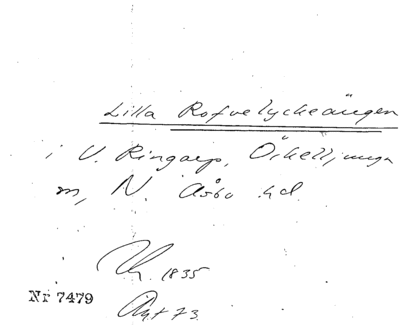 Lilla Rofvelyckeängen
i V. Ringarp, Örkelljunga
m, N. Åsbo hd.
1835
Nr 7479
Akt 73.